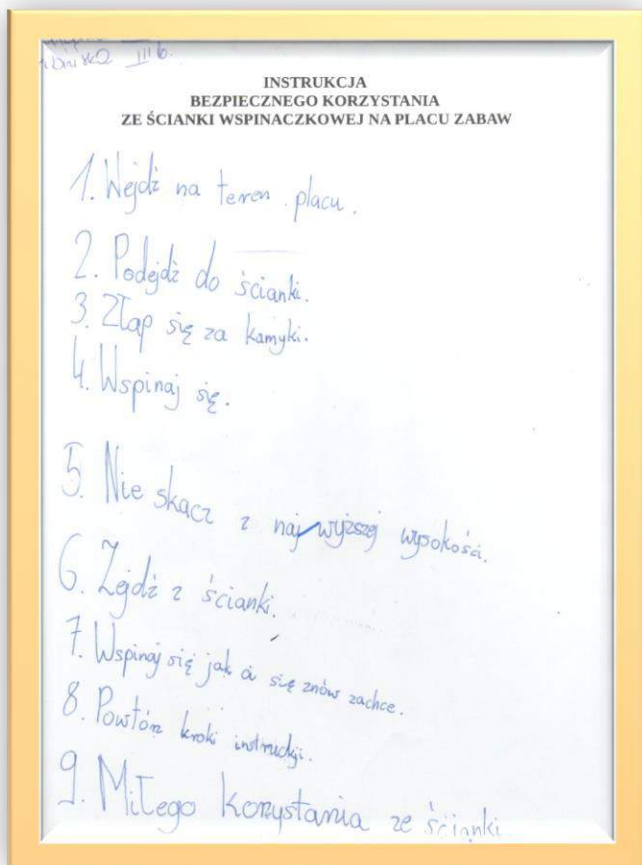 III b.
INSTRUKCJA
BEZPIECZNEGO KORZYSTANIA
ZE ŚCIANKI WSPINACZKOWEJ NA PLACU ZABAW
1. Wejdź na teren placu.
2. Podejdź do ścianki.
3. Złap się za kamyki.
4. Wspinaj się.
5. Nie skacz z najwyższej wysokości.
6. Zejdź z ścianki.
7. Wspinaj się jak ci się znów zachce.
8. Powtórz kroki instrukcji.
9. Miłego korzystania ze ścianki